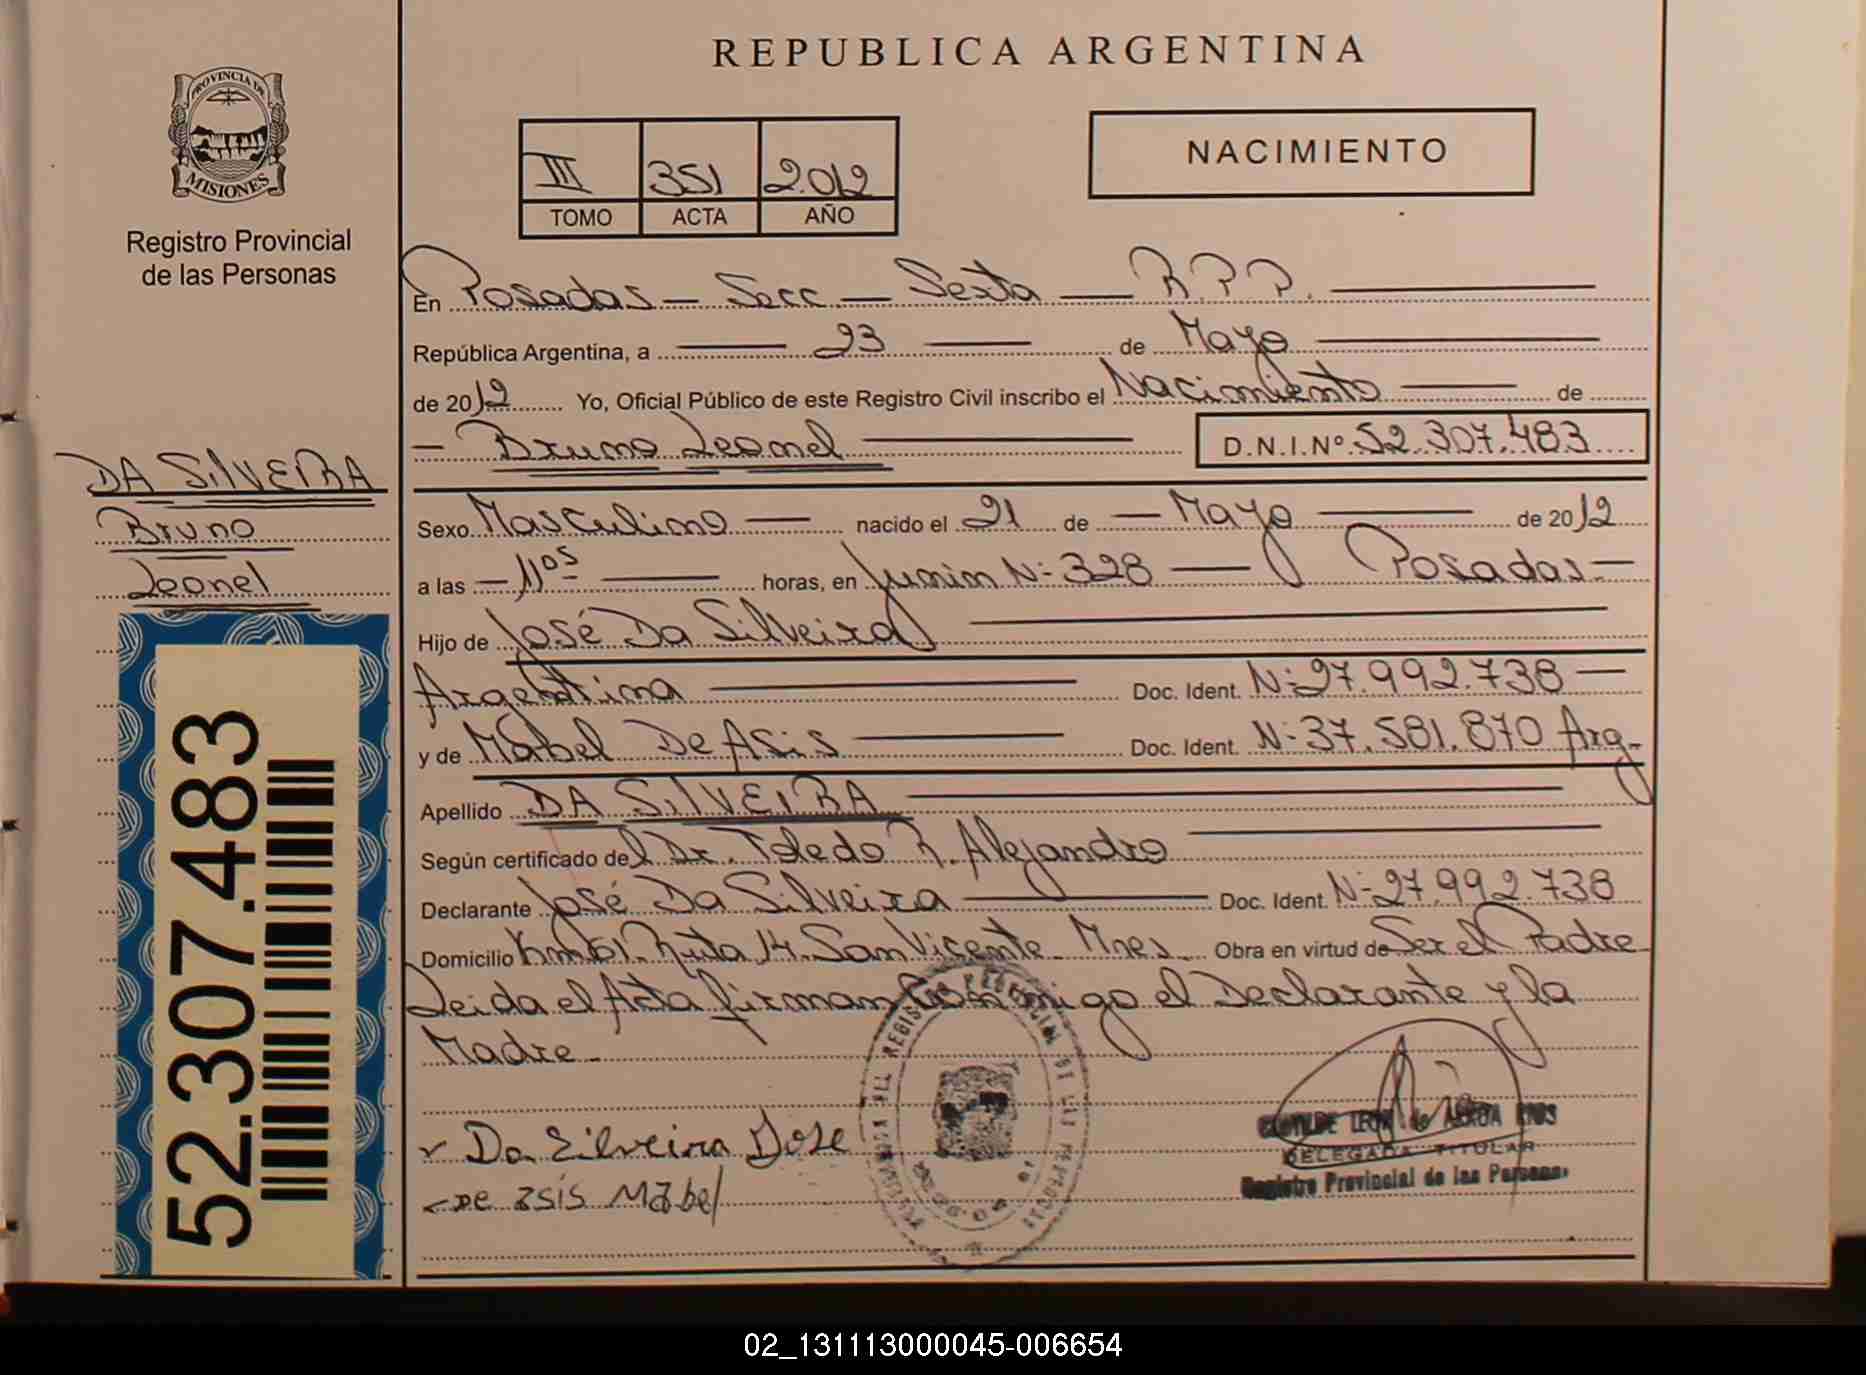 REPUBLICA ARGENTINA
PROVINCIA DE
MISIONES
Registro Provincial
de las Personas
III 351 2.012
TOMO ACTA AÑO
NACIMIENTO
En Posadas - Secc - Sexta - R.P.P.
República Argentina, a 23 de Mayo
de 2012 Yo, Oficial Público de este Registro Civil inscribo el Nacimiento de
Bruno Leonel D.N.I.Nº 52.307.483
DA SILVEIRA
Bruno
Leonel
52.307.483
Sexo Masculino nacido el 21 de Mayo de 2012
a las 11 05 horas, en Junin Nº 328 Posadas
Hijo de José Da Silveira
Argentina Doc. Ident. Nº 27.992.738
y de Mabel De Asis Doc. Ident. Nº 37.581.870 Arg.
Apellido DA SILVEIRA
Según certificado del Dr. Toledo R. Alejandro
Declarante José Da Silveira Doc. Ident. Nº 27.992.738
Domicilio Ruta 14. San Vicente. Mnes. Obra en virtud de Ser el Padre
Leida el Acta firman Conmigo el Declarante y la
Madre -
Da Silveira Jose
De asis Mabel
DELEGADA TITULAR
Registro Provincial de las Personas
02_131113000045-006654